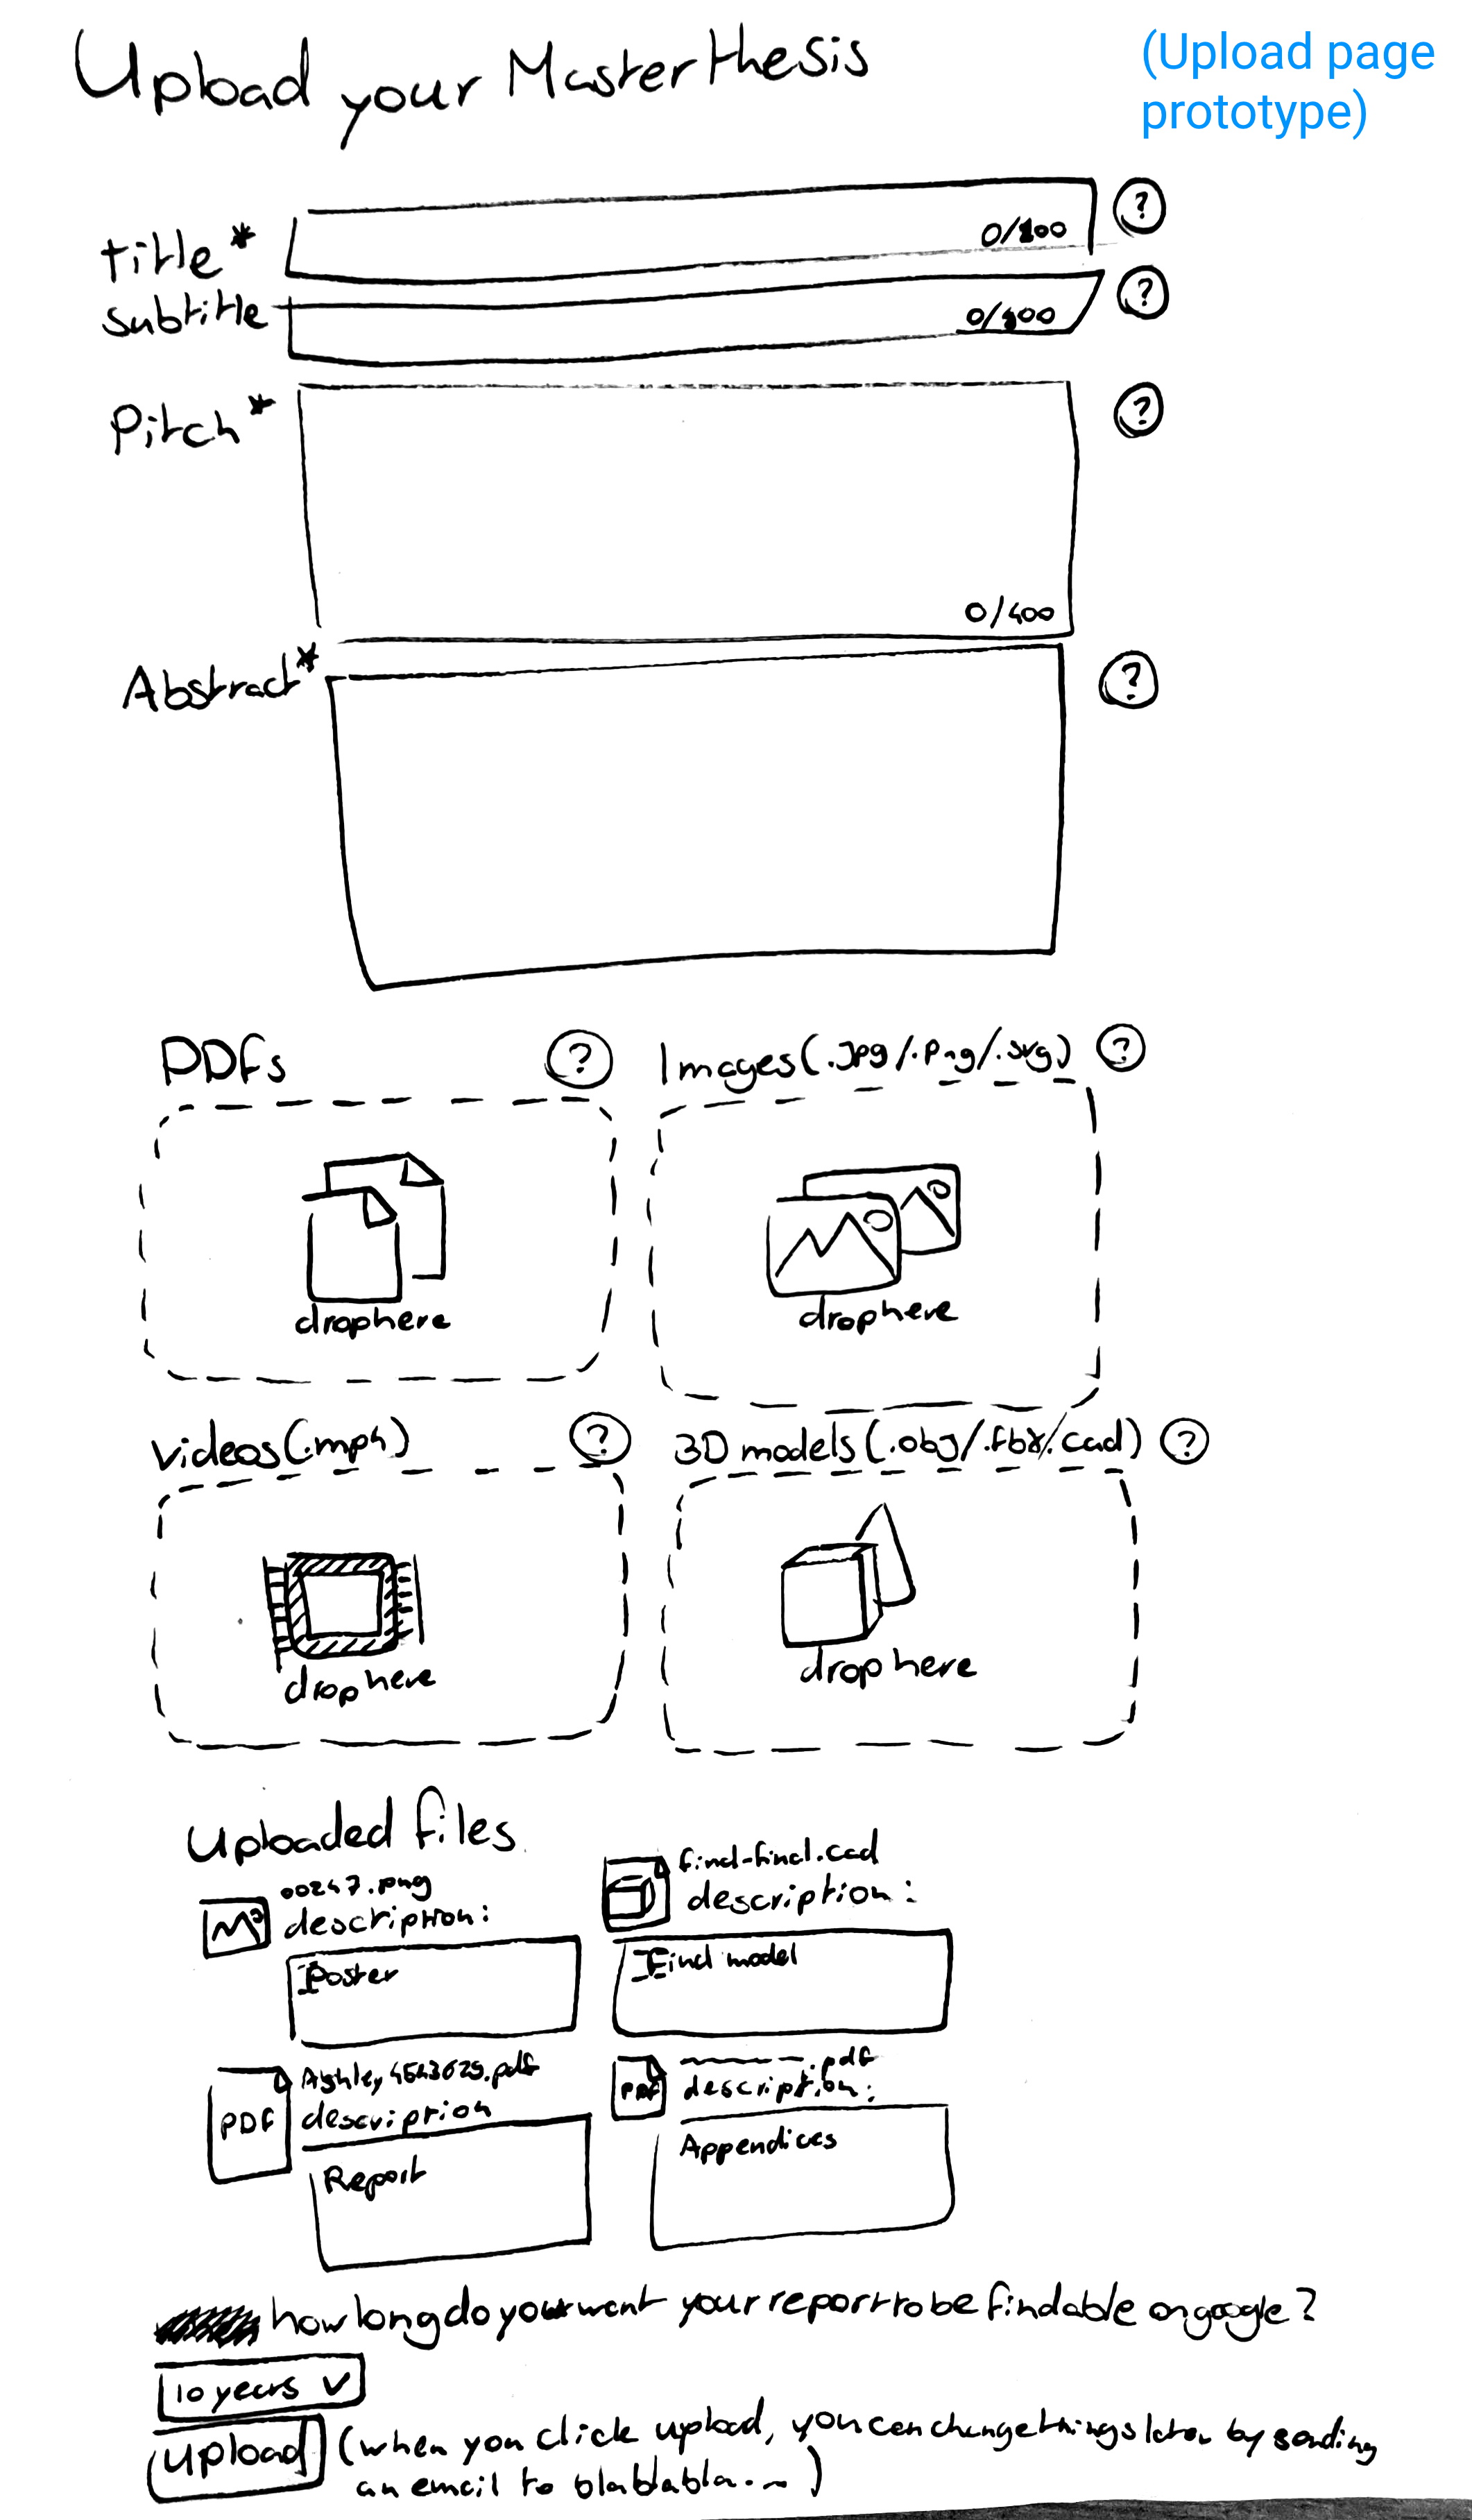 Upload your Masterthesis
(Upload page
prototype)
title*
0/100
?
subtitle
0/100
?
Pitch*
?
0/400
Abstract*
?
PDFs
?
Images(.jpg/.png/.svg)
?
drophere
drophere
videos(.mp4)
?
3D models(.obj/.fbx/.cad)
?
drophere
drop here
Uploaded files
00247.png
description:
Poster
final-final.cad
description:
Final model
PDF
Ashley4543629.pdf
description
Report
PDF
.pdf
description:
Appendices
how long do you want your report to be findable on google?
10 years
upload
(when you click upload, you can change things later by sending
an email to blablabla...)